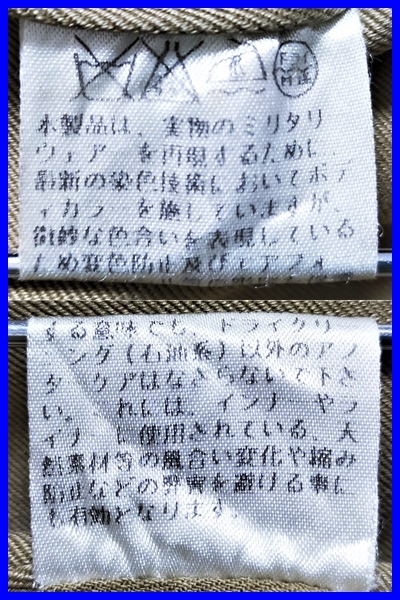 本製品は、実物のミリタリ
ウェアーを再現するために、
最新の染色技術においてボデ
ィカラーを施していますが、
微妙な色合いを表現している
ため変色防止及び
する意味でも、ドライクリ
ーング(石油系)以外のアフ
ターケアはなさらないで下さ
い。これには、インナーやラ
イナーに使用されている、天
然素材等の風合い変化や縮み
防止などの弊害を避ける事に
も有効となります。